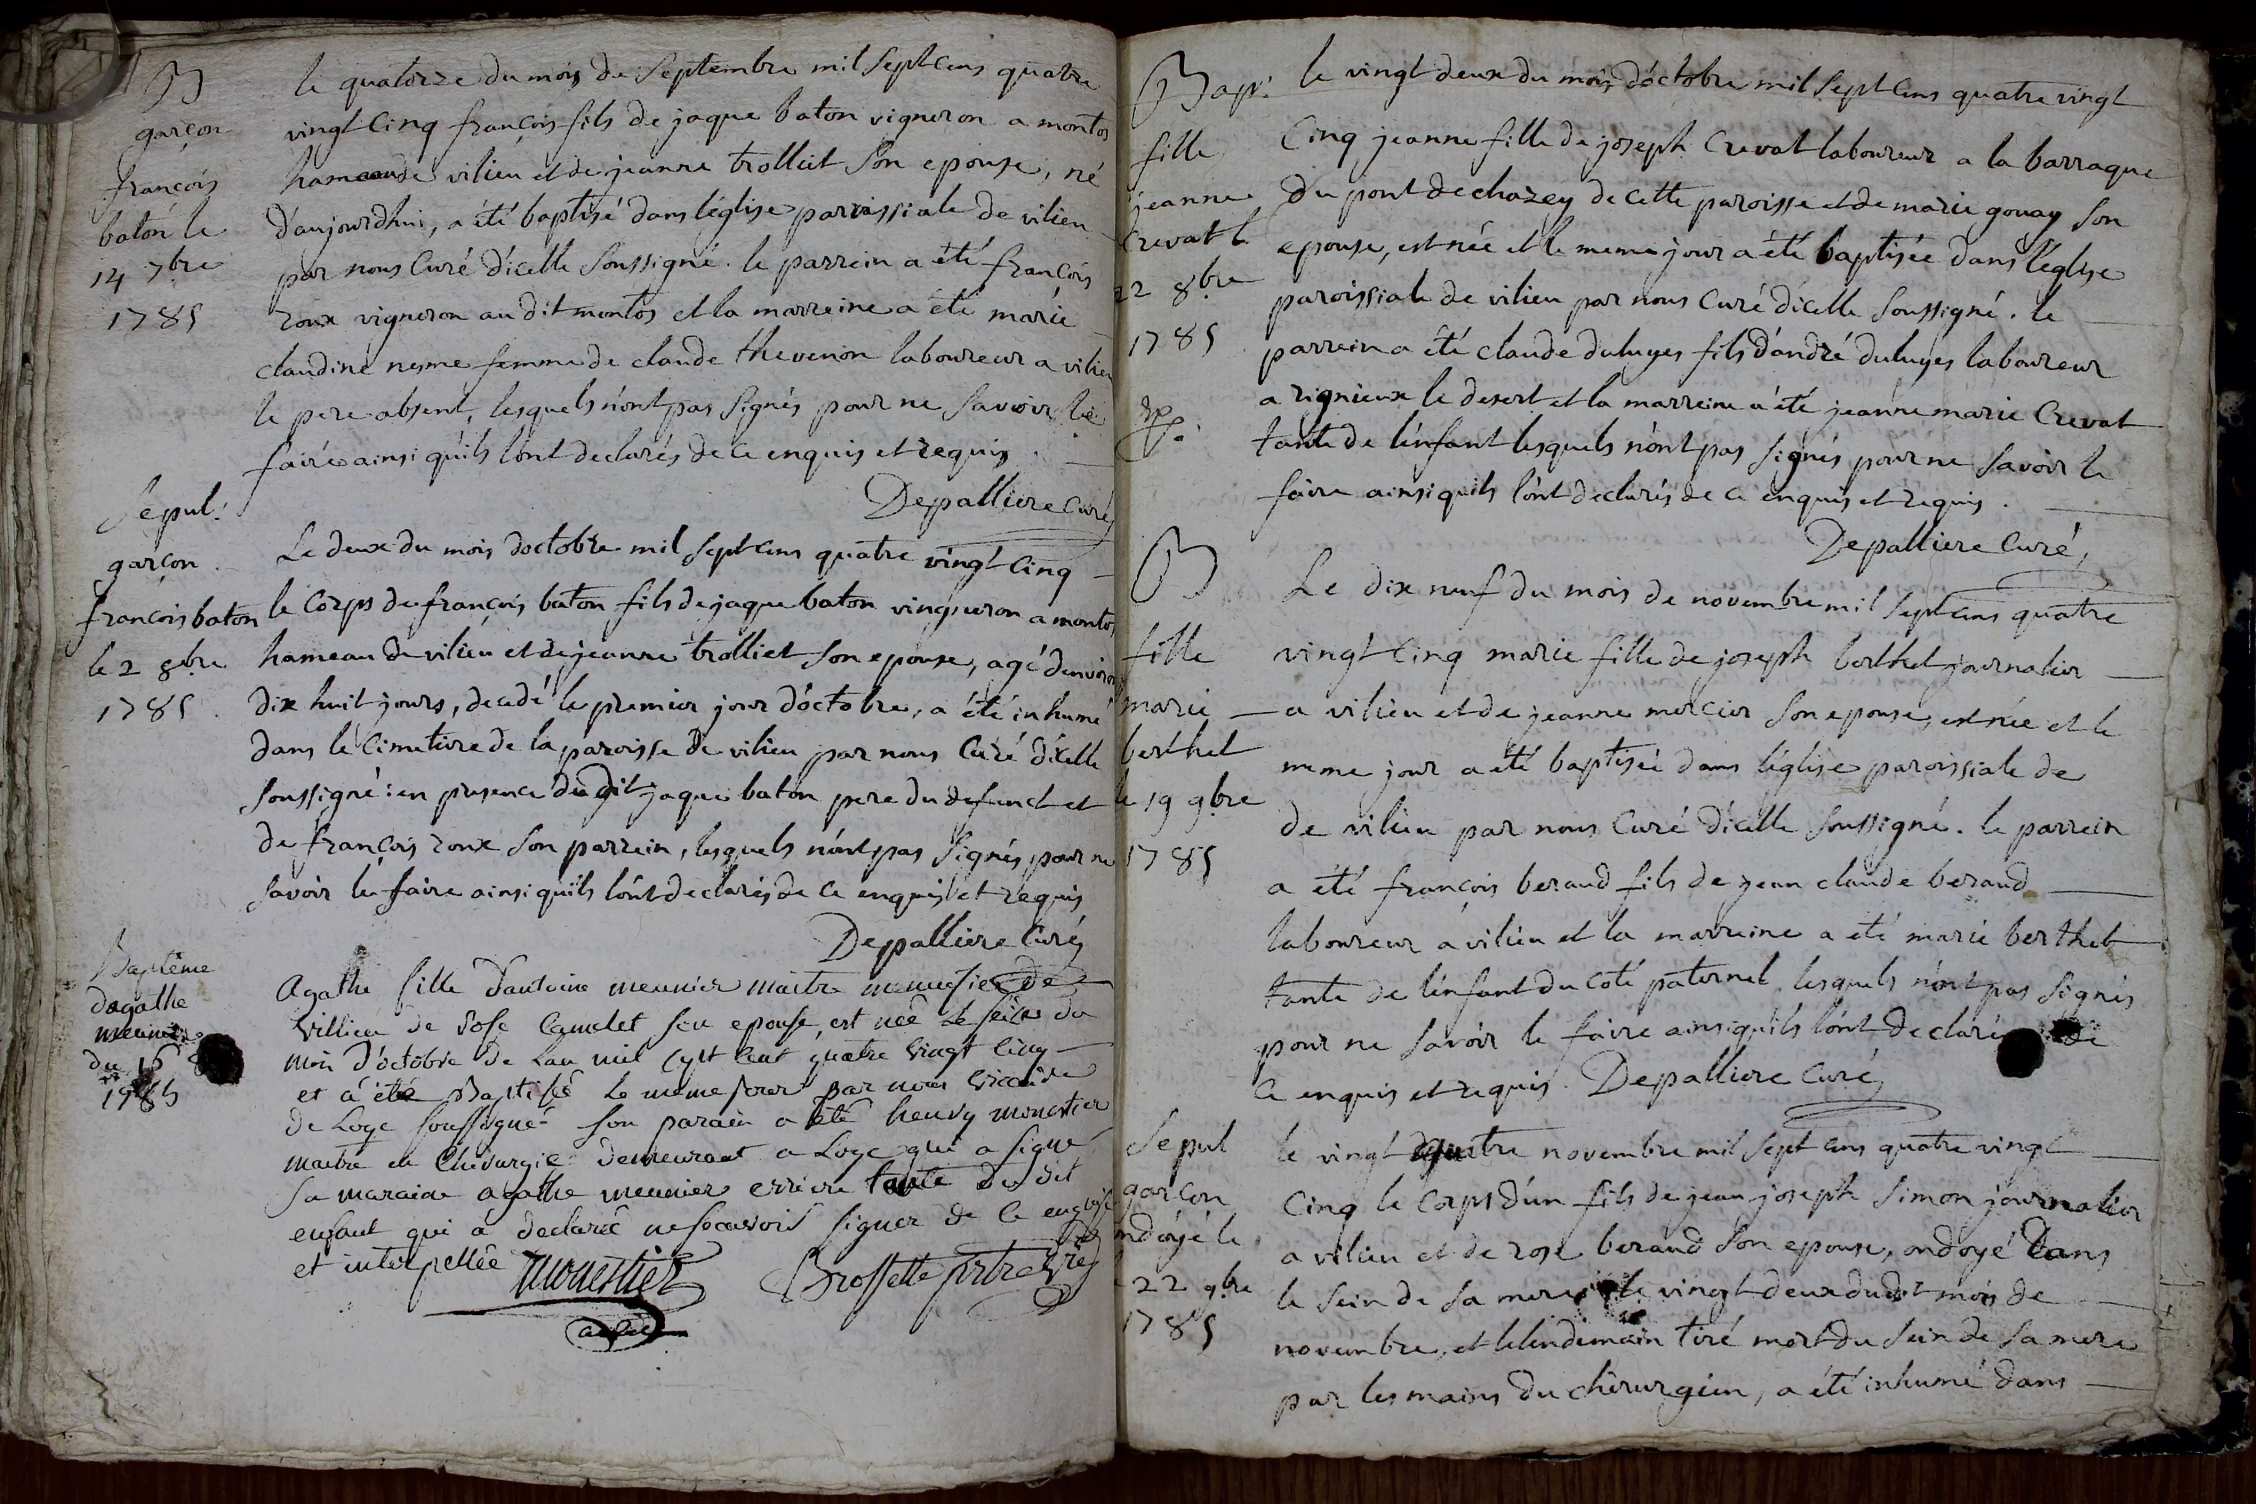 B
garçon
françois
baton le
14 7bre
1785
le quatorze du mois de Septembre mil Sept cens quatre
vingt cinq françois fils de jaque baton vigneron a montos
hameau de vilieu et de jeanne trolliet Son epouse, né
d'aujourdhui, a été baptisé dans l'église parroissiale de vilieu
par nous Curé d'icelle Soussigné. le parrein a été françois
roux vigneron au dit montos et la marreine a été marie
claudine nesme femme de claude thevenon laboureur a vilieu
le pere absent, lesquels n'ont pas Signés pour ne Savoir le
faire ainsi qu'ils l'ont declarés de ce enquis et requis.
Depalliere Curé
Sepul.
garçon
françois baton
le 2 8bre
1785
Le deux du mois d'octobre mil Sept cens quatre vingt Cinq
le Corps de françois baton fils de jaque baton vingneron a montos
hameau de vilieu et de jeanne trolliet Son epouse, agé d'environ
dix huit jours, decedé le premier jour d'octobre, a été inhumé
dans le Cimetiere de la paroisse de vilieu par nous Curé d'icelle
Soussigné: en presence du dit jaque baton pere du defunct et
de françois roux Son parrein, lesquels n'ont pas Signés pour ne
Savoir le faire ainsi quils l'ont declarés de ce enquis et requis
Depalliere Curé
Baptême
dagathe
meunier
du 16
1785
Agathe fille d'antoine meunier maitre menuisier de
Villieu de Rose Camelet son epouse, est née le seize du
mois d'octobre de Lan mil sept Cent quatre Vingt Cinq
et à été Baptisée Le même jour par nous vicaire
de Loye soussigné son parain a été henry monestier
maitre en Chirurgie demeurant a Loye qui a signé
sa maraine agathe meunier arriere tante du dit
enfant qui à declarée ne scavoir signer de ce enquise
et interpellée
Monestier
Brossette prtre Vre
Bapt.
fille
jeanne
Crevat le
22 8bre
1785
le vingt deux du mois d'octobre mil Sept cens quatre vingt
Cinq jeanne fille de joseph Crevat laboureur a la barraque
du pont de chazey de cette paroisse et de marie gouay Son
epouse, est née et le meme jour a été baptisée dans l'église
paroissiale de vilieu par nous Curé d'icelle Soussigné. le
parrein a été claude duluyes fils d'andré duluyes laboureur
a rignieux le desert et la marreine a été jeanne marie Crevat
tante de l'enfant lesquels n'ont pas Signés pour ne Savoir le
faire ainsi quils l'ont declarés de ce enquis et requis.
Depalliere Curé
B
fille
marie
berthet
le 19 9bre
1785
Le dix neuf du mois de novembre mil Sept cens quatre
vingt Cinq marie fille de joseph berthet journalier
a vilieu et de jeanne mercier Son epouse, est née et le
meme jour a été baptisée dans l'église paroissiale de
de vilieu par nous Curé d'icelle Soussigné. le parrein
a été françois beraud fils de jean claude beraud
laboureur a vilieu et la marreine a été marie berthet
tante de l'enfant du coté paternel lesquels n'ont pas Signés
pour ne Savoir le faire ainsi quils l'ont declaré de
ce enquis et requis. Depalliere Curé
Sepul
garçon
ondoyé le
22 9bre
1785
le vingt quatre novembre mil Sept cens quatre vingt
Cinq le Corps d'un fils de jean joseph Simon journalier
a vilieu et de rose beraud Son epouse, ondoyé dans
le Sein de Sa mere le vingt deux dudit mois de
novembre, et le lendemain tiré mort du Sein de Sa mere
par les mains du chirurgien, a été inhumé dans